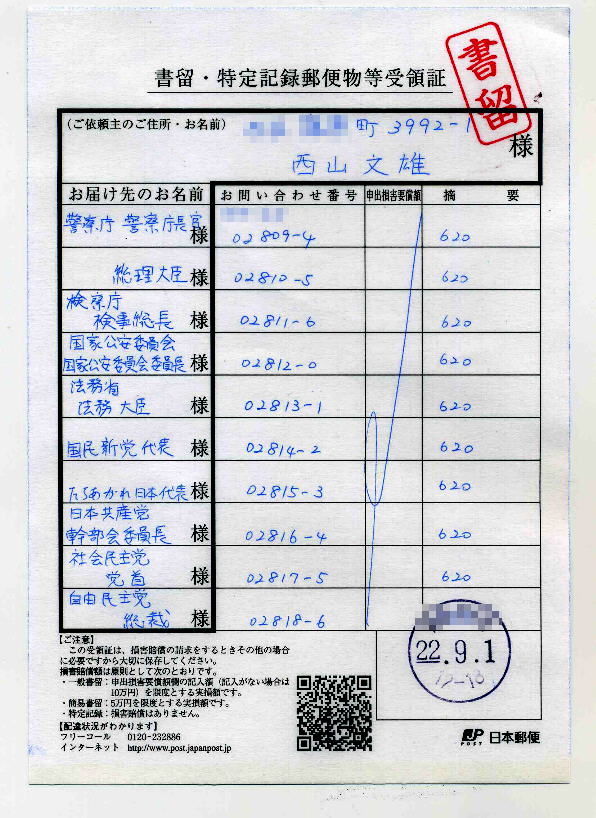 書留・特定記録郵便物等受領証
書留
(ご依頼主のご住所・お名前)
町 3992-1
西山文雄 様
お届け先のお名前 お問い合わせ番号 申出損害要償額 摘 要
警察庁 警察庁長官 様 02809-4 620
総理大臣 様 02810-5 620
検察庁
検事総長 様 02811-6 620
国家公安委員会
国家公安委員会委員長 様 02812-0 620
法務省
法務大臣 様 02813-1 620
国民新党代表 様 02814-2 620
たちあがれ日本代表 様 02815-3 620
日本共産党
幹部会委員長 様 02816-4 620
社会民主党
党首 様 02817-5 620
自由民主党
総裁 様 02818-6 620
【ご注意】
この受領証は、損害賠償の請求をするときその他の場合
に必要ですから大切に保存してください。
損害賠償額は原則として次のとおりです。
・一般書留：申出損害要償額欄の記入額（記入がない場合は
10万円）を限度とする実損額です。
・簡易書留：5万円を限度とする実損額です。
・特定記録：損害賠償はありません。
【配達状況がわかります】
フリーコール 0120-232886
インターネット http://www.post.japanpost.jp
22.9.1
12-18
JP POST 日本郵便